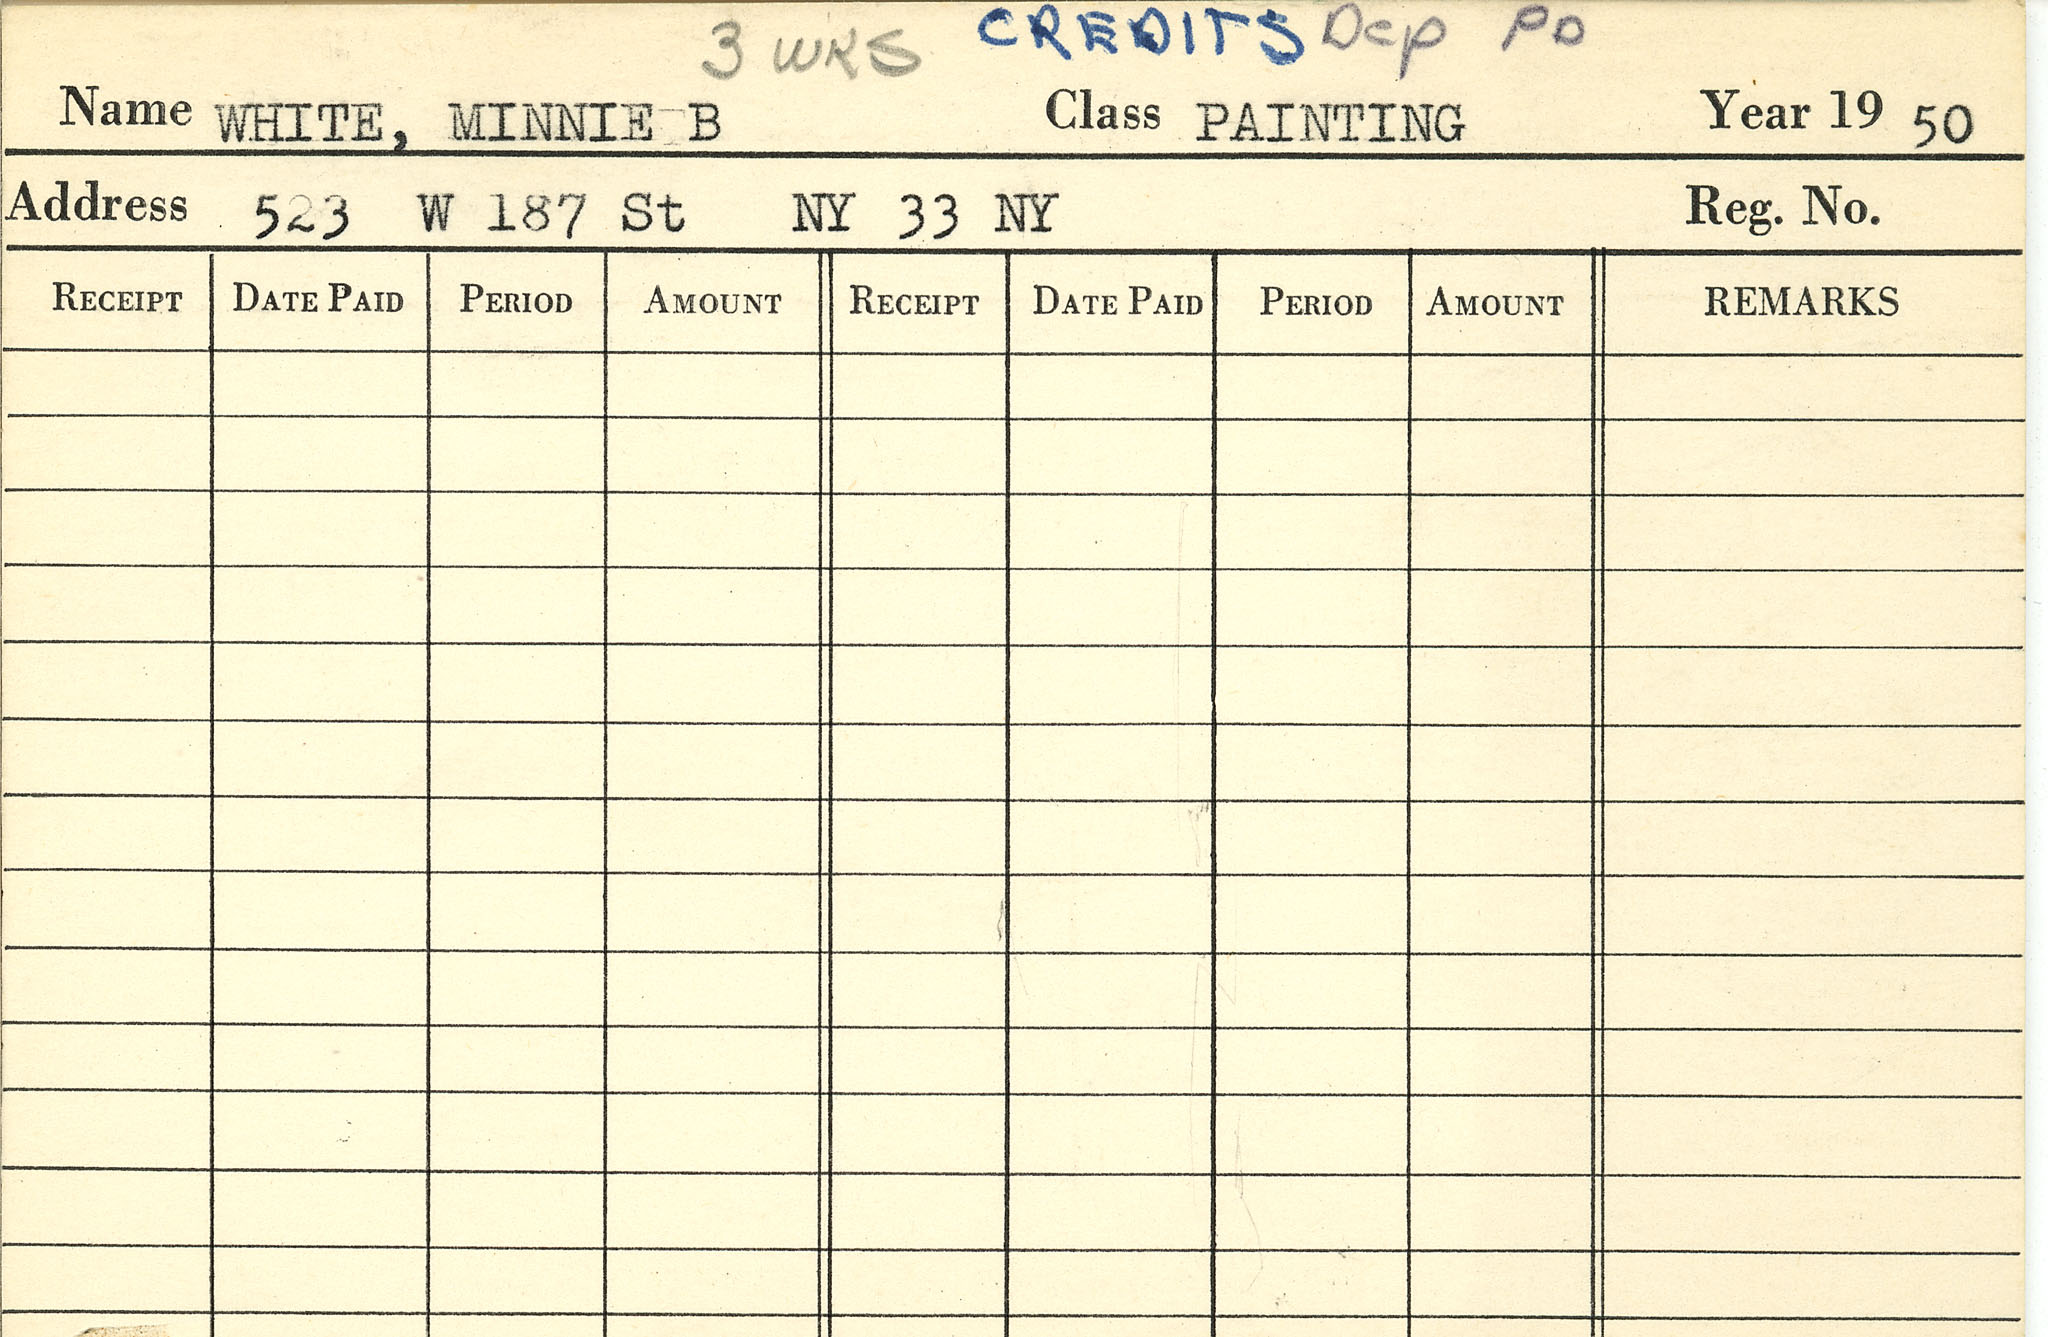 3 WKS CREDITS Dep PD
Name WHITE, MINNIE B Class PAINTING Year 19 50
Address 523 W 187 St NY 33 NY Reg. No.
RECEIPT DATE PAID PERIOD AMOUNT RECEIPT DATE PAID PERIOD AMOUNT REMARKS